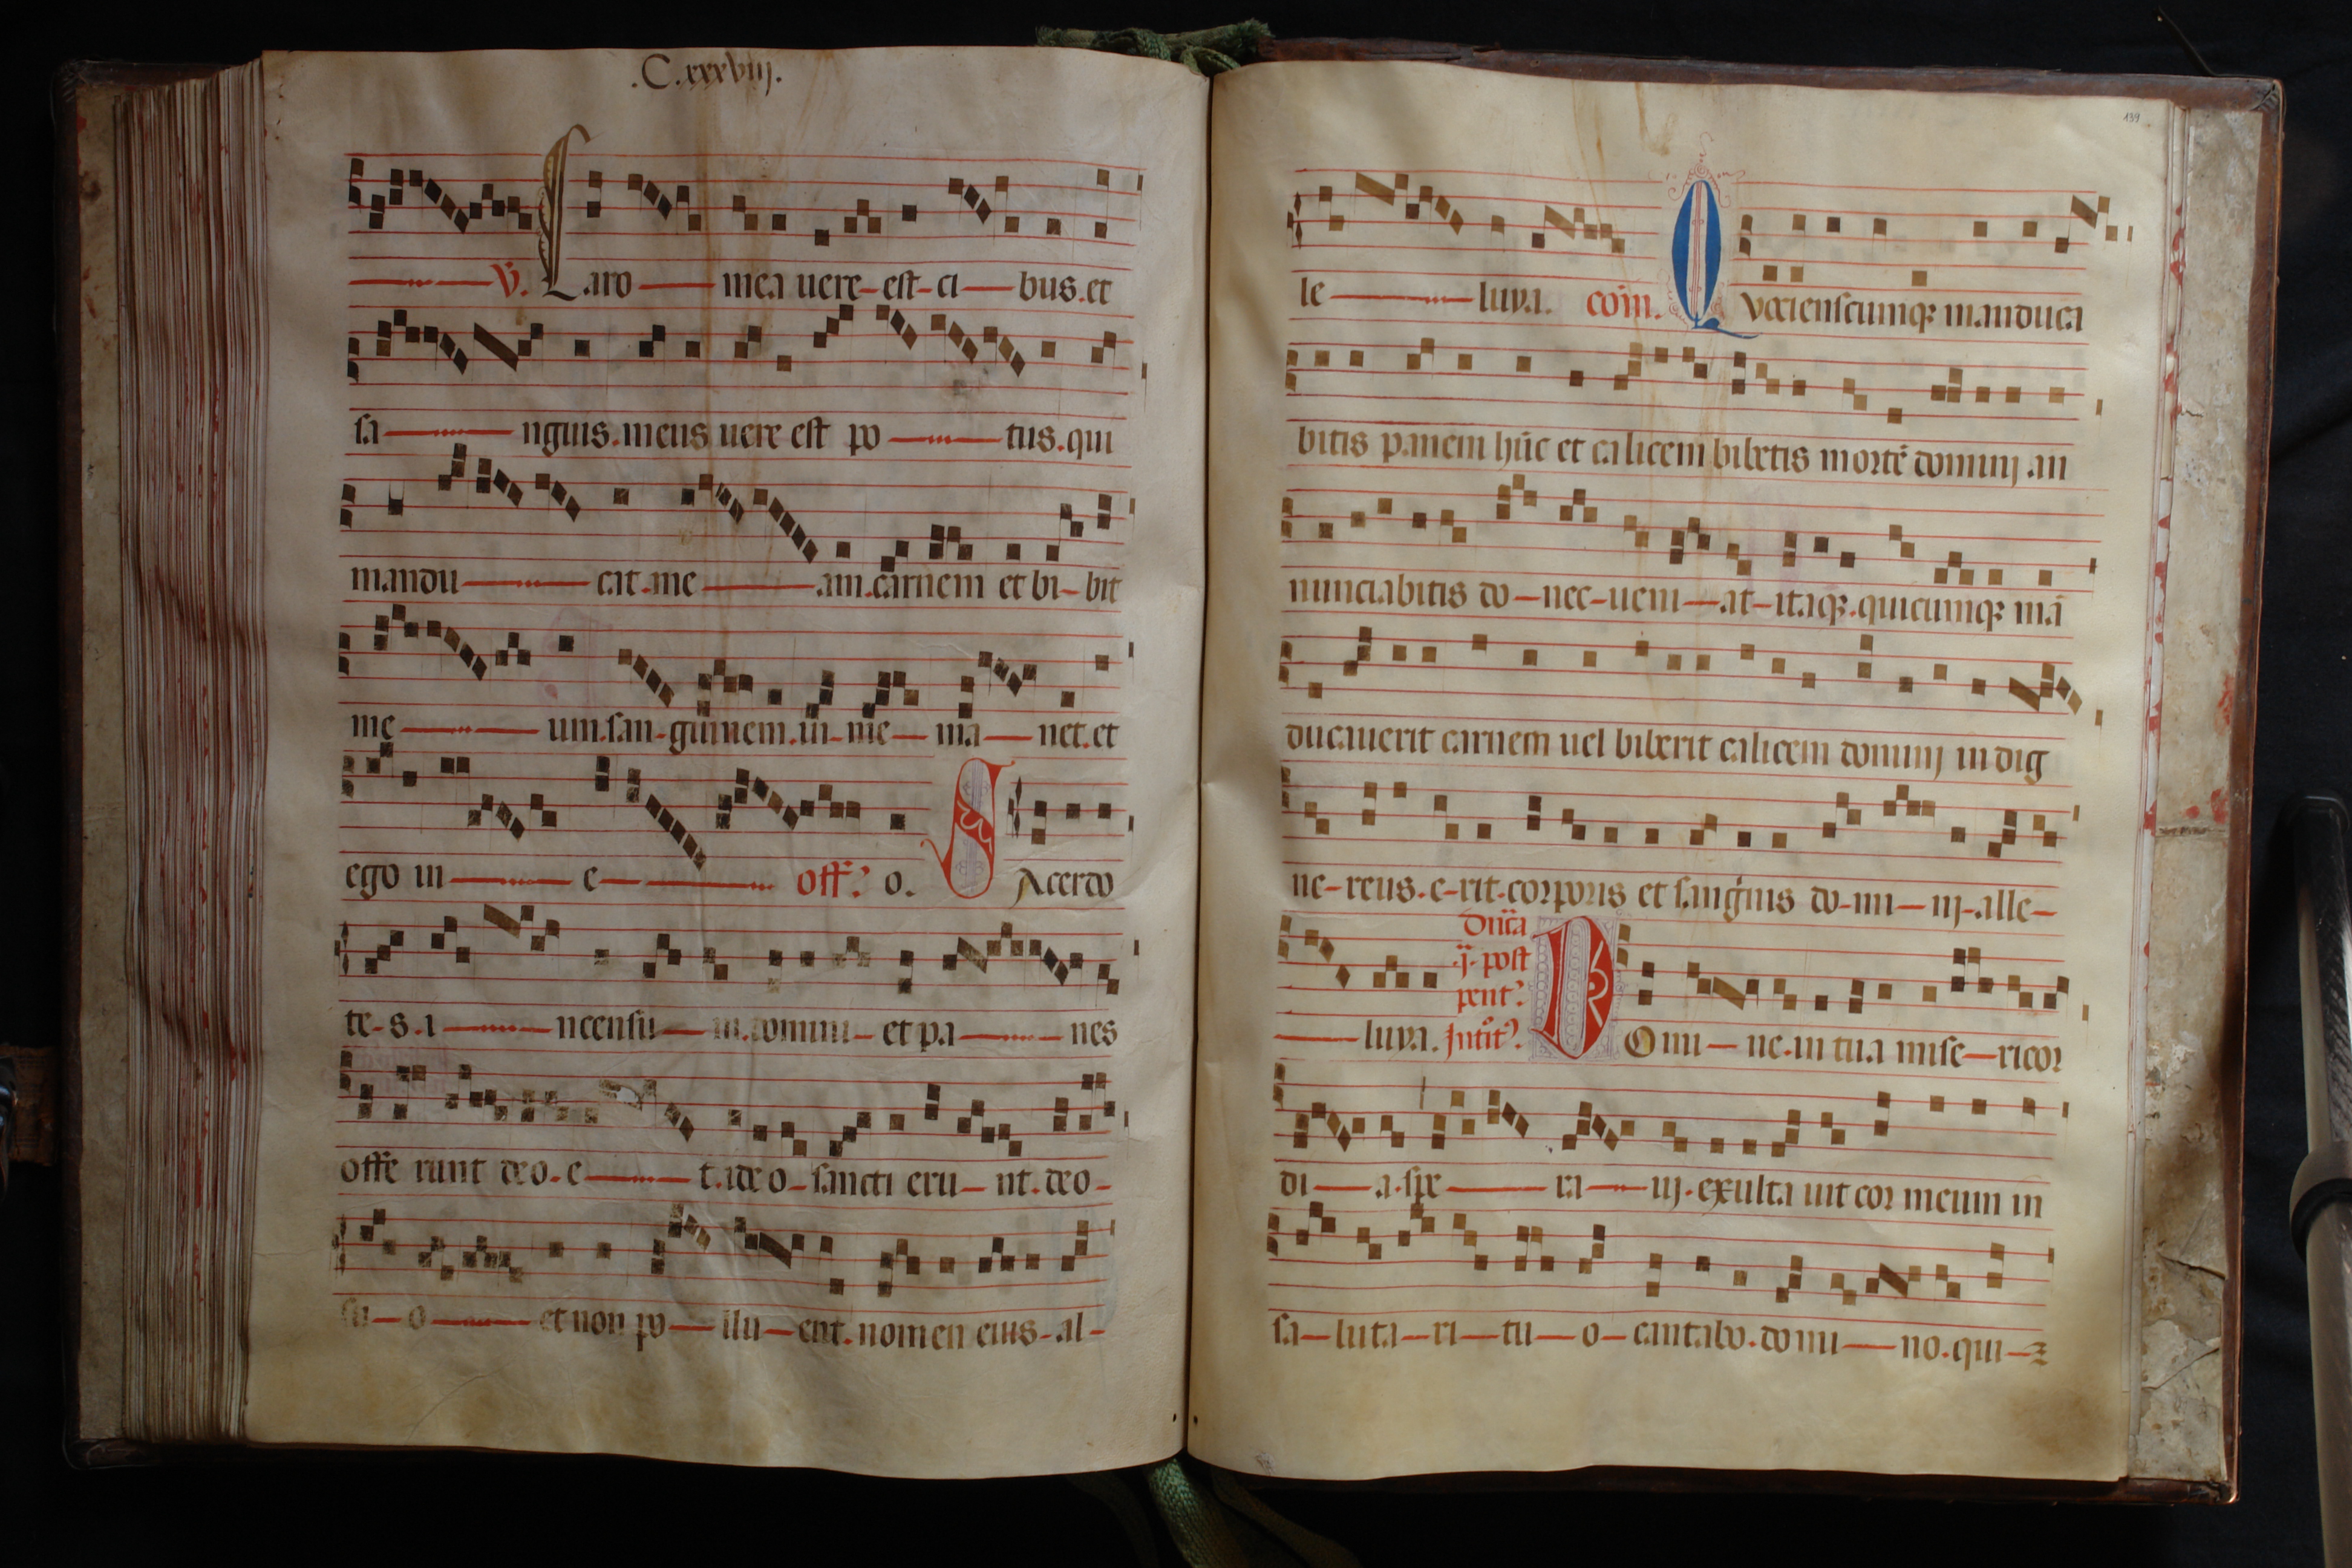 .C.xxxviij.
℣. Caro mea uere est ci bus. et
sa nguis. meus uere est po tus. qui
mandu cat. me am. carnem et bi bit
me um. san guinem. in me ma net. et
ego in e off? o. S Acerdo
te s. i ncensu m. domini et pa nes
offe runt deo. e t. ideo sancti eru nt. deo
su o et non po llu ent. nomen eius al
139
le luya. com̄. Q Vociensc̄umqꝫ manduca
bitis panem hūc et calicem bibetis mortē dominj an
nunciabitis do nec ueni at itaqꝫ. quicumqꝫ mā
ducauerit carnem uel biberit calicem dominj indig
ne reus. e rit. corporis et sanguis do mi nj. alle
Dn̄ica
.ij. post
pent?
luya. Intit? D Omi ne. in tua mise ricor
di a. spe ra uj. exulta uit cor meum in
sa luta ri tu o cantabo. domi no. qui